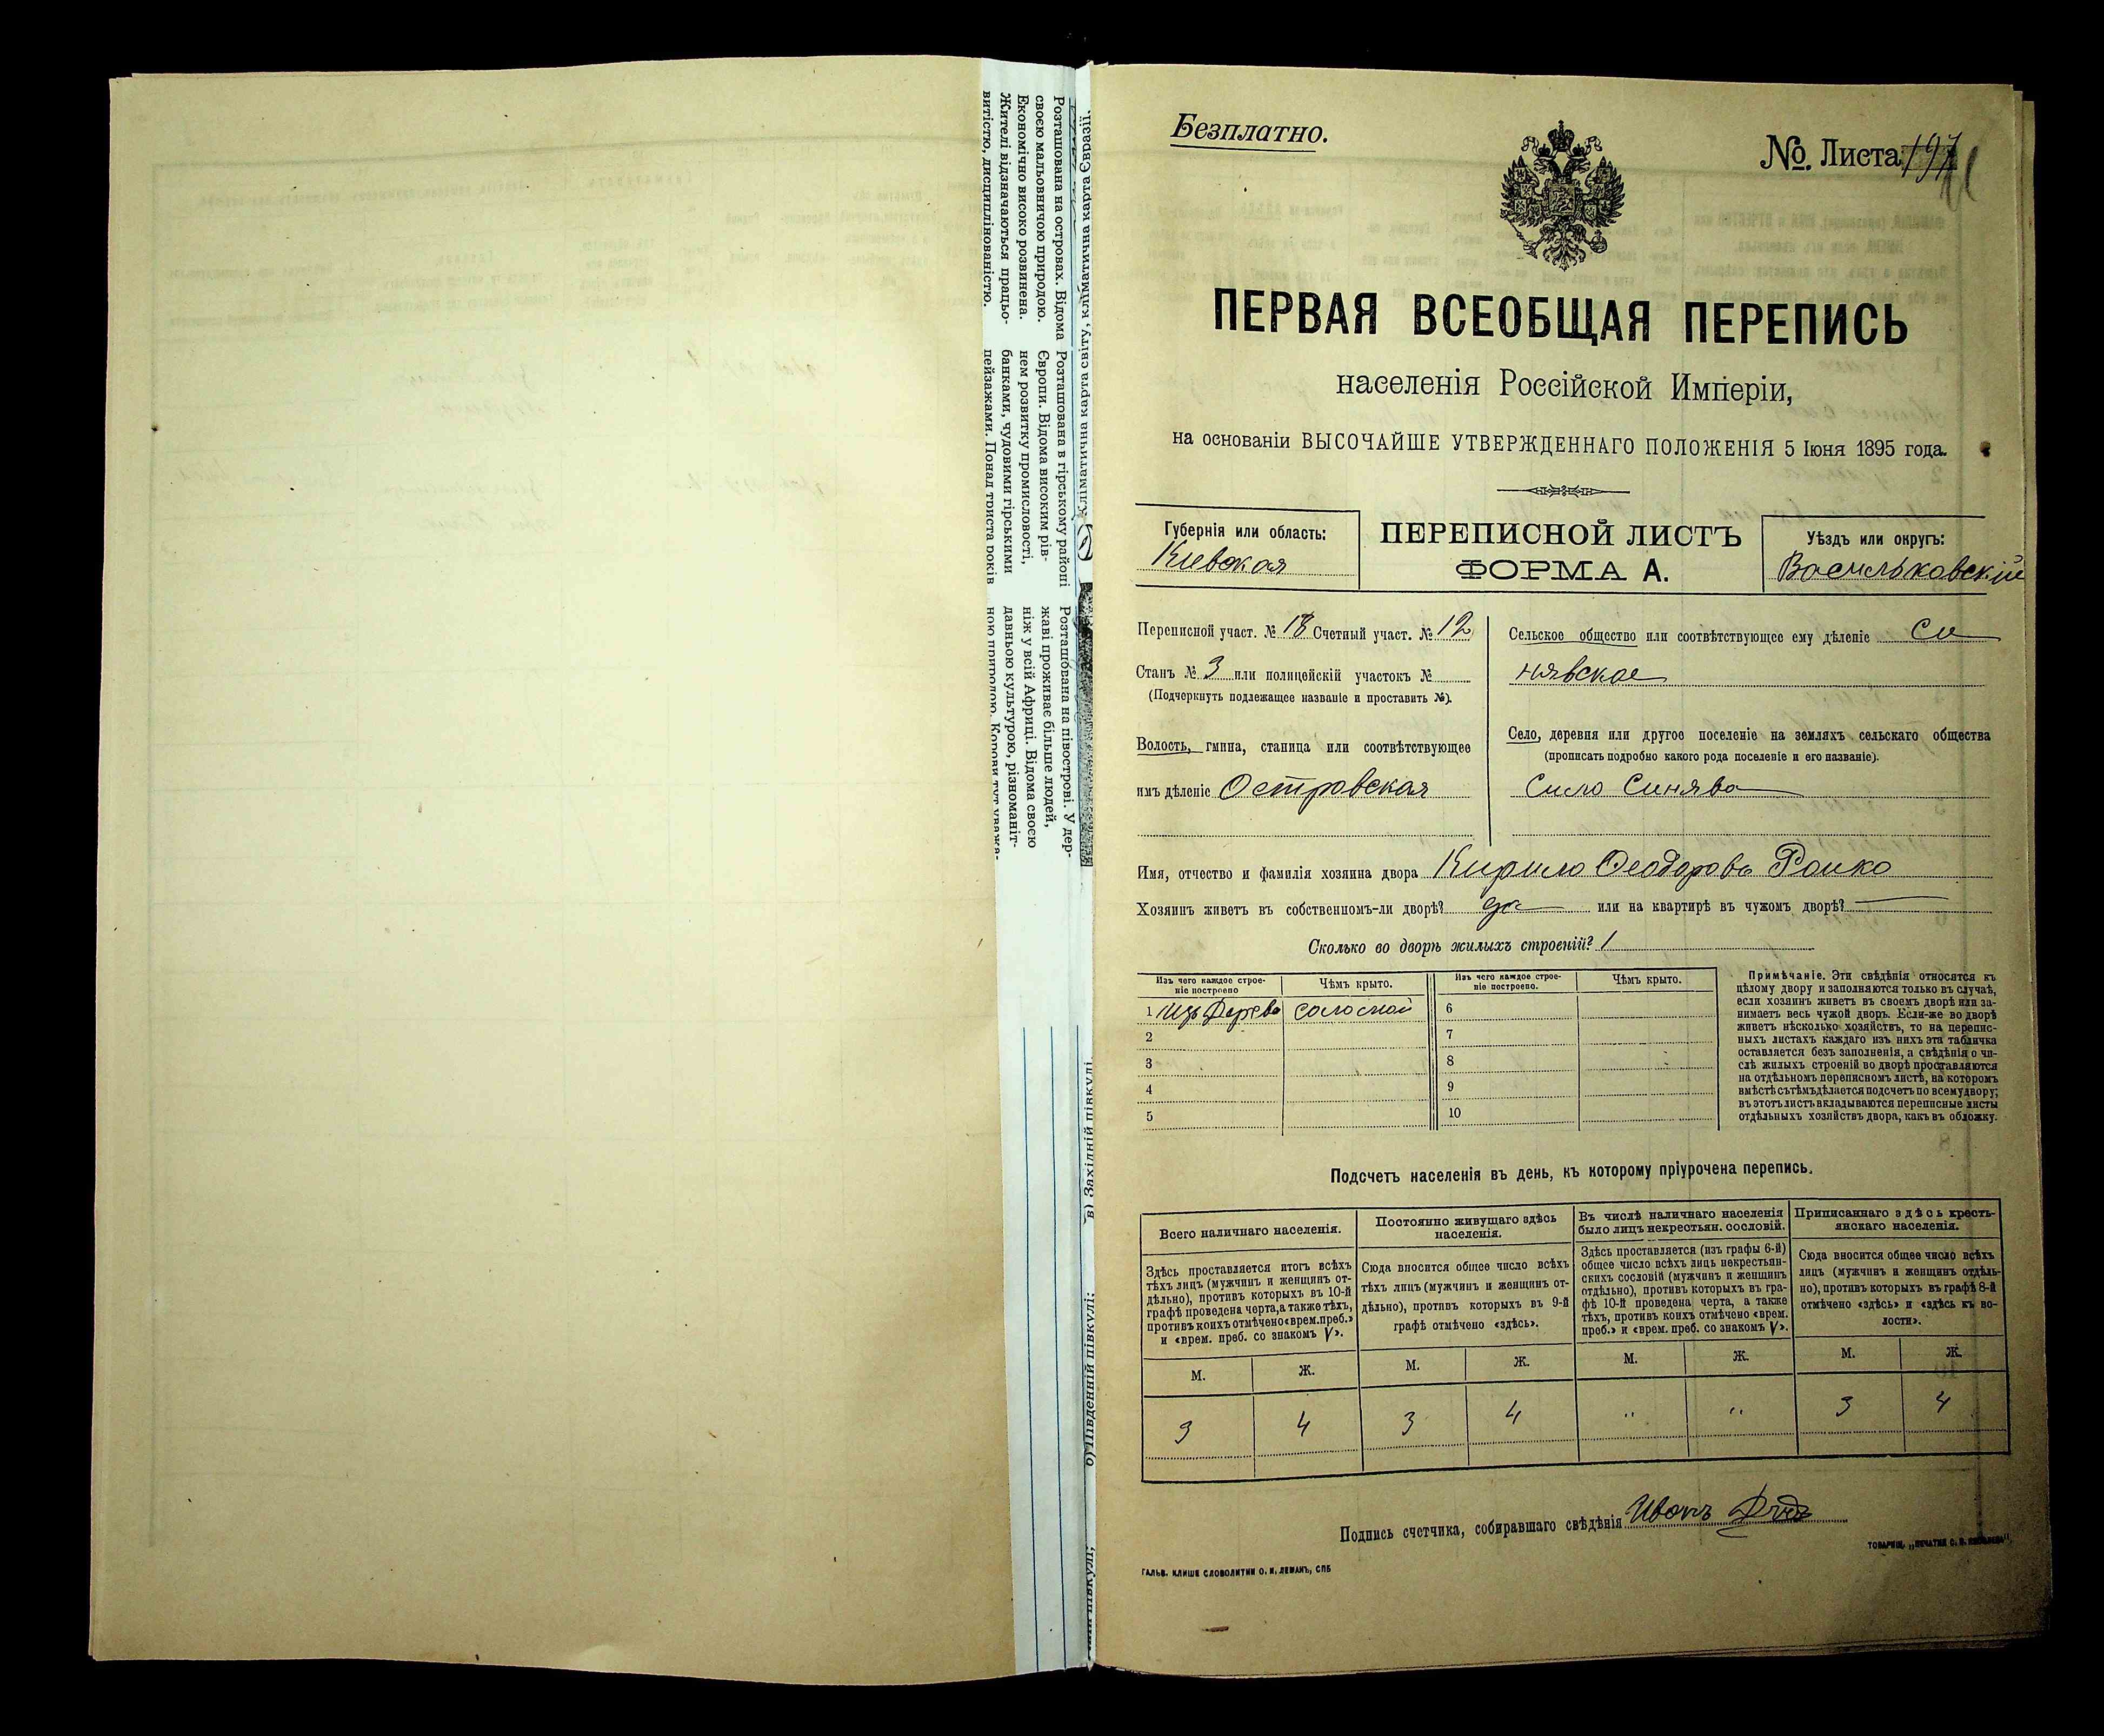 Розташована на островах. Відома
своєю мальовничою природою.
Економічно високо розвинена.
Жителі відзначаються працьо-
витістю, дисциплінованістю.
Розташована в гірському районі
Європи. Відома високим рів-
нем розвитку промисловості,
банками, чудовими гірськими
пейзажами. Понад триста років
Розташована на півострові. У дер-
жаві проживає більше людей,
ніж у всій Африці. Відома своєю
давньою культурою, різноманіт-
ною природою. Корови тут уважа-
кліматична карта світу, кліматична карта Євразії.
в) Західній півкулі
б) Південній півкулі;
Безплатно.
№. Листа
ПЕРВАЯ ВСЕОБЩАЯ ПЕРЕПИСЬ
населенія Россійской Имперіи,
на основаніи ВЫСОЧАЙШЕ УТВЕРЖДЕННАГО ПОЛОЖЕНІЯ 5 Іюня 1895 года.
Губернія или область:
Кіевская
ПЕРЕПИСНОЙ ЛИСТЪ
ФОРМА А.
Уѣздъ или округъ:
Васильковскій
Переписной участ. № 18 Счетный участ. № 12
Станъ № 3 или полицейскій участокъ №
(Подчеркнуть подлежащее названіе и проставить №).
Волость, гмина, станица или соотвѣтствующее
имъ дѣленіе Островская
Сельское общество или соотвѣтствующее ему дѣленіе Си
нявское
Село, деревня или другое поселеніе на земляхъ сельскаго общества
(прописать подробно какого рода поселеніе и его названіе).
Село Синява
Имя, отчество и фамилія хозяина двора Кирило Феодоровъ Роико
Хозяинъ живетъ въ собственномъ-ли дворѣ? да или на квартирѣ въ чужомъ дворѣ?
Сколько во дворѣ жилыхъ строеній? 1
Изъ чего каждое строе-
ніе построено
Чѣмъ крыто.
Изъ чего каждое строе-
ніе построено.
Чѣмъ крыто.
1 Изъ Дерева соломой 6
2 7
3 8
4 9
5 10
Примѣчаніе. Эти свѣдѣнія относятся къ
цѣлому двору и заполняются только въ случаѣ,
если хозяинъ живетъ въ своемъ дворѣ или за-
нимаетъ весь чужой дворъ. Если-же во дворѣ
живетъ нѣсколько хозяйствъ, то на перепис-
ныхъ листахъ каждаго изъ нихъ эта табличка
оставляется безъ заполненія, а свѣдѣнія о чи-
слѣ жилыхъ строеній во дворѣ проставляются
на отдѣльномъ переписномъ листѣ, на которомъ
вмѣстѣ съ тѣмъ дѣлается подсчетъ по всему двору;
въ этотъ листъ вкладываются переписные листы
отдѣльныхъ хозяйствъ двора, какъ въ обложку.
Подсчетъ населенія въ день, къ которому пріурочена перепись.
Всего наличнаго населенія.
Здѣсь проставляется итогъ всѣхъ
тѣхъ лицъ (мужчинъ и женщинъ от-
дѣльно), противъ которыхъ въ 10-й
графѣ проведена черта, а также тѣхъ,
противъ коихъ отмѣчено «врем. преб.»
и «врем. преб. со знакомъ V».
Постоянно живущаго здѣсь
населенія.
Сюда вносится общее число всѣхъ
тѣхъ лицъ (мужчинъ и женщинъ от-
дѣльно), противъ которыхъ въ 9-й
графѣ отмѣчено «здѣсь».
Въ числѣ наличнаго населенія
было лицъ некрестьян. сословій.
Здѣсь проставляется (изъ графы 6-й)
общее число всѣхъ лицъ некрестьян-
скихъ сословій (мужчинъ и женщинъ
отдѣльно), противъ которыхъ въ гра-
фѣ 10-й проведена черта, а также
тѣхъ, противъ коихъ отмѣчено «врем.
преб.» и «врем. преб. со знакомъ V».
Приписаннаго здѣсь кресть-
янскаго населенія.
Сюда вносится общее число всѣхъ
лицъ (мужчинъ и женщинъ отдѣль-
но), противъ которыхъ въ графѣ 8-й
отмѣчено «здѣсь» и «здѣсь къ во-
лости».
М. Ж. М. Ж. М. Ж. М. Ж.
3 4 3 4 " " 3 4
Подпись счетчика, собиравшаго свѣдѣнія Иванъ
ГАЛЬВ. КЛИШЕ СЛОВОЛИТНИ О. И. ЛЕМАНЪ, СПБ
ТОВАРИЩ. „ПЕЧАТНИ С. П. ЯКОВЛЕВА"